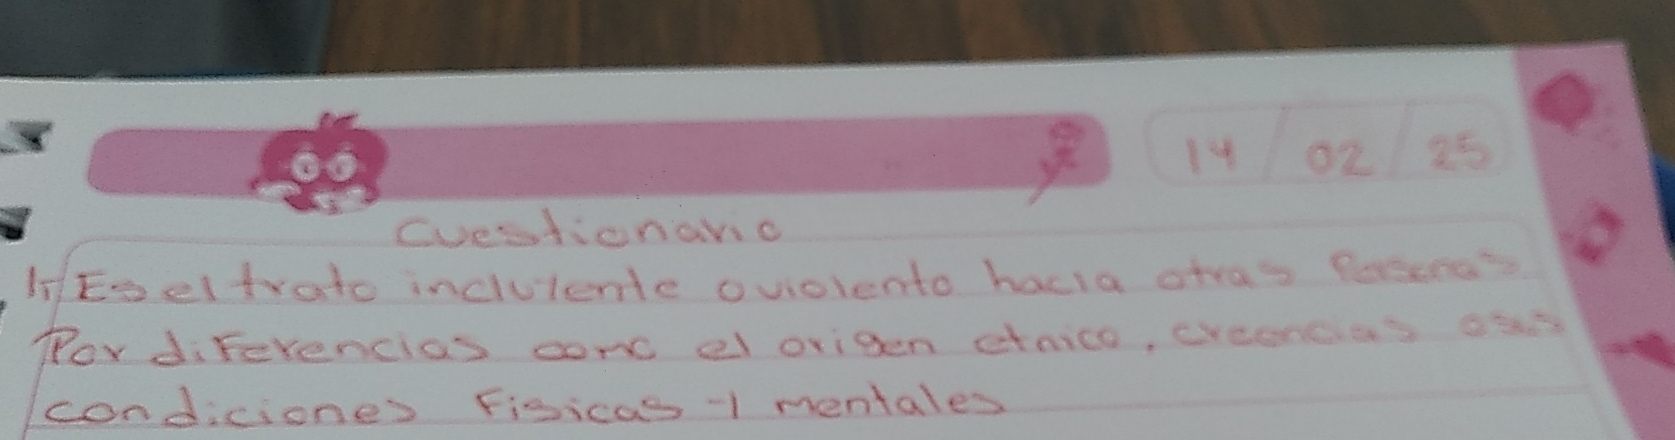 14 / 02 / 25
Cuestionario
1- Es el trato inclulente o violento hacia otras Personas
Por diferencias como el origen etnico, creencias o sus
condiciones Fisicas y mentales